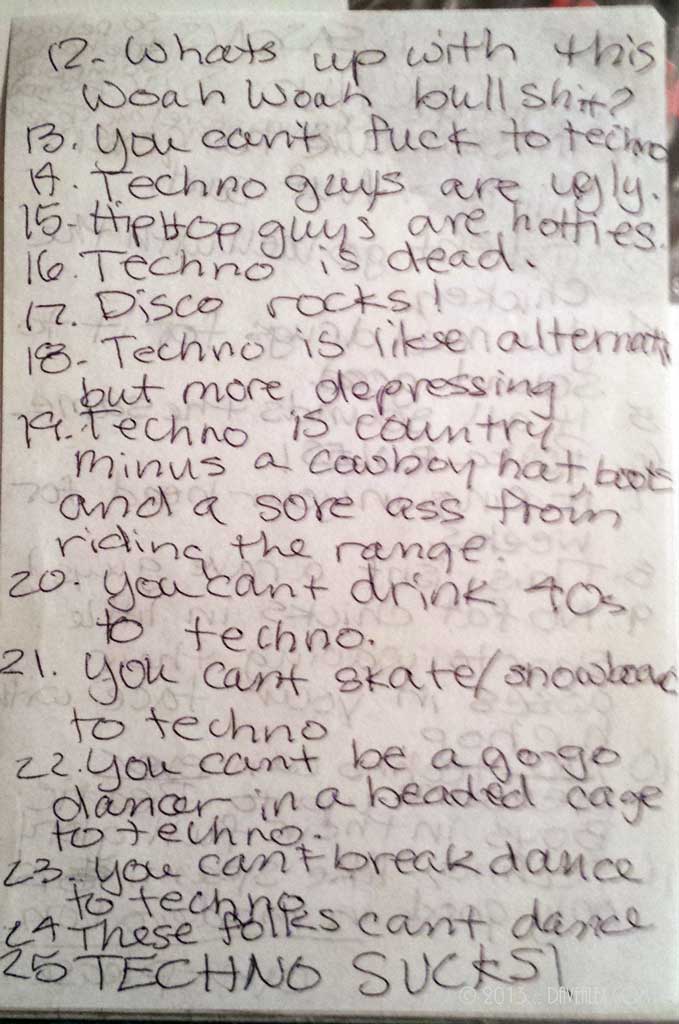 12. Whats up with this
woah woah bullshit?
13. You can't fuck to techno
14. Techno guys are ugly.
15. HipHop guys are hotties.
16. Techno is dead.
17. Disco rocks!
18. Techno is likse alternati
but more depressing
19. Techno is country
minus a cowboy hat, boots
and a sore ass from
riding the range.
20. You cant drink 40s
to techno.
21. You cant skate/snowboard
to techno
22. You cant be a go-go
dancer in a beaded cage
to techno.
23. You can't breakdance
to techno
24 These folks cant dance
25 TECHNO SUCKS!
© 2013